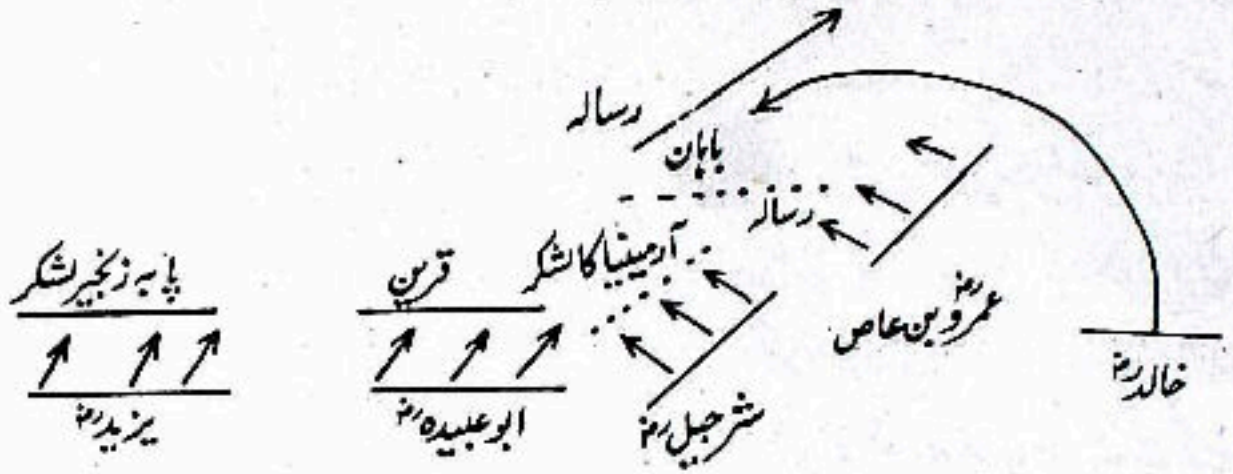 رسالہ
باہان
رسالہ
آرمینیا کا لشکر
قرین
پا بہ زنجیر لشکر
عمروؓ بن عاص
خالدؓ
شرجیلؓ
ابو عبیدہؓ
یزیدؓ